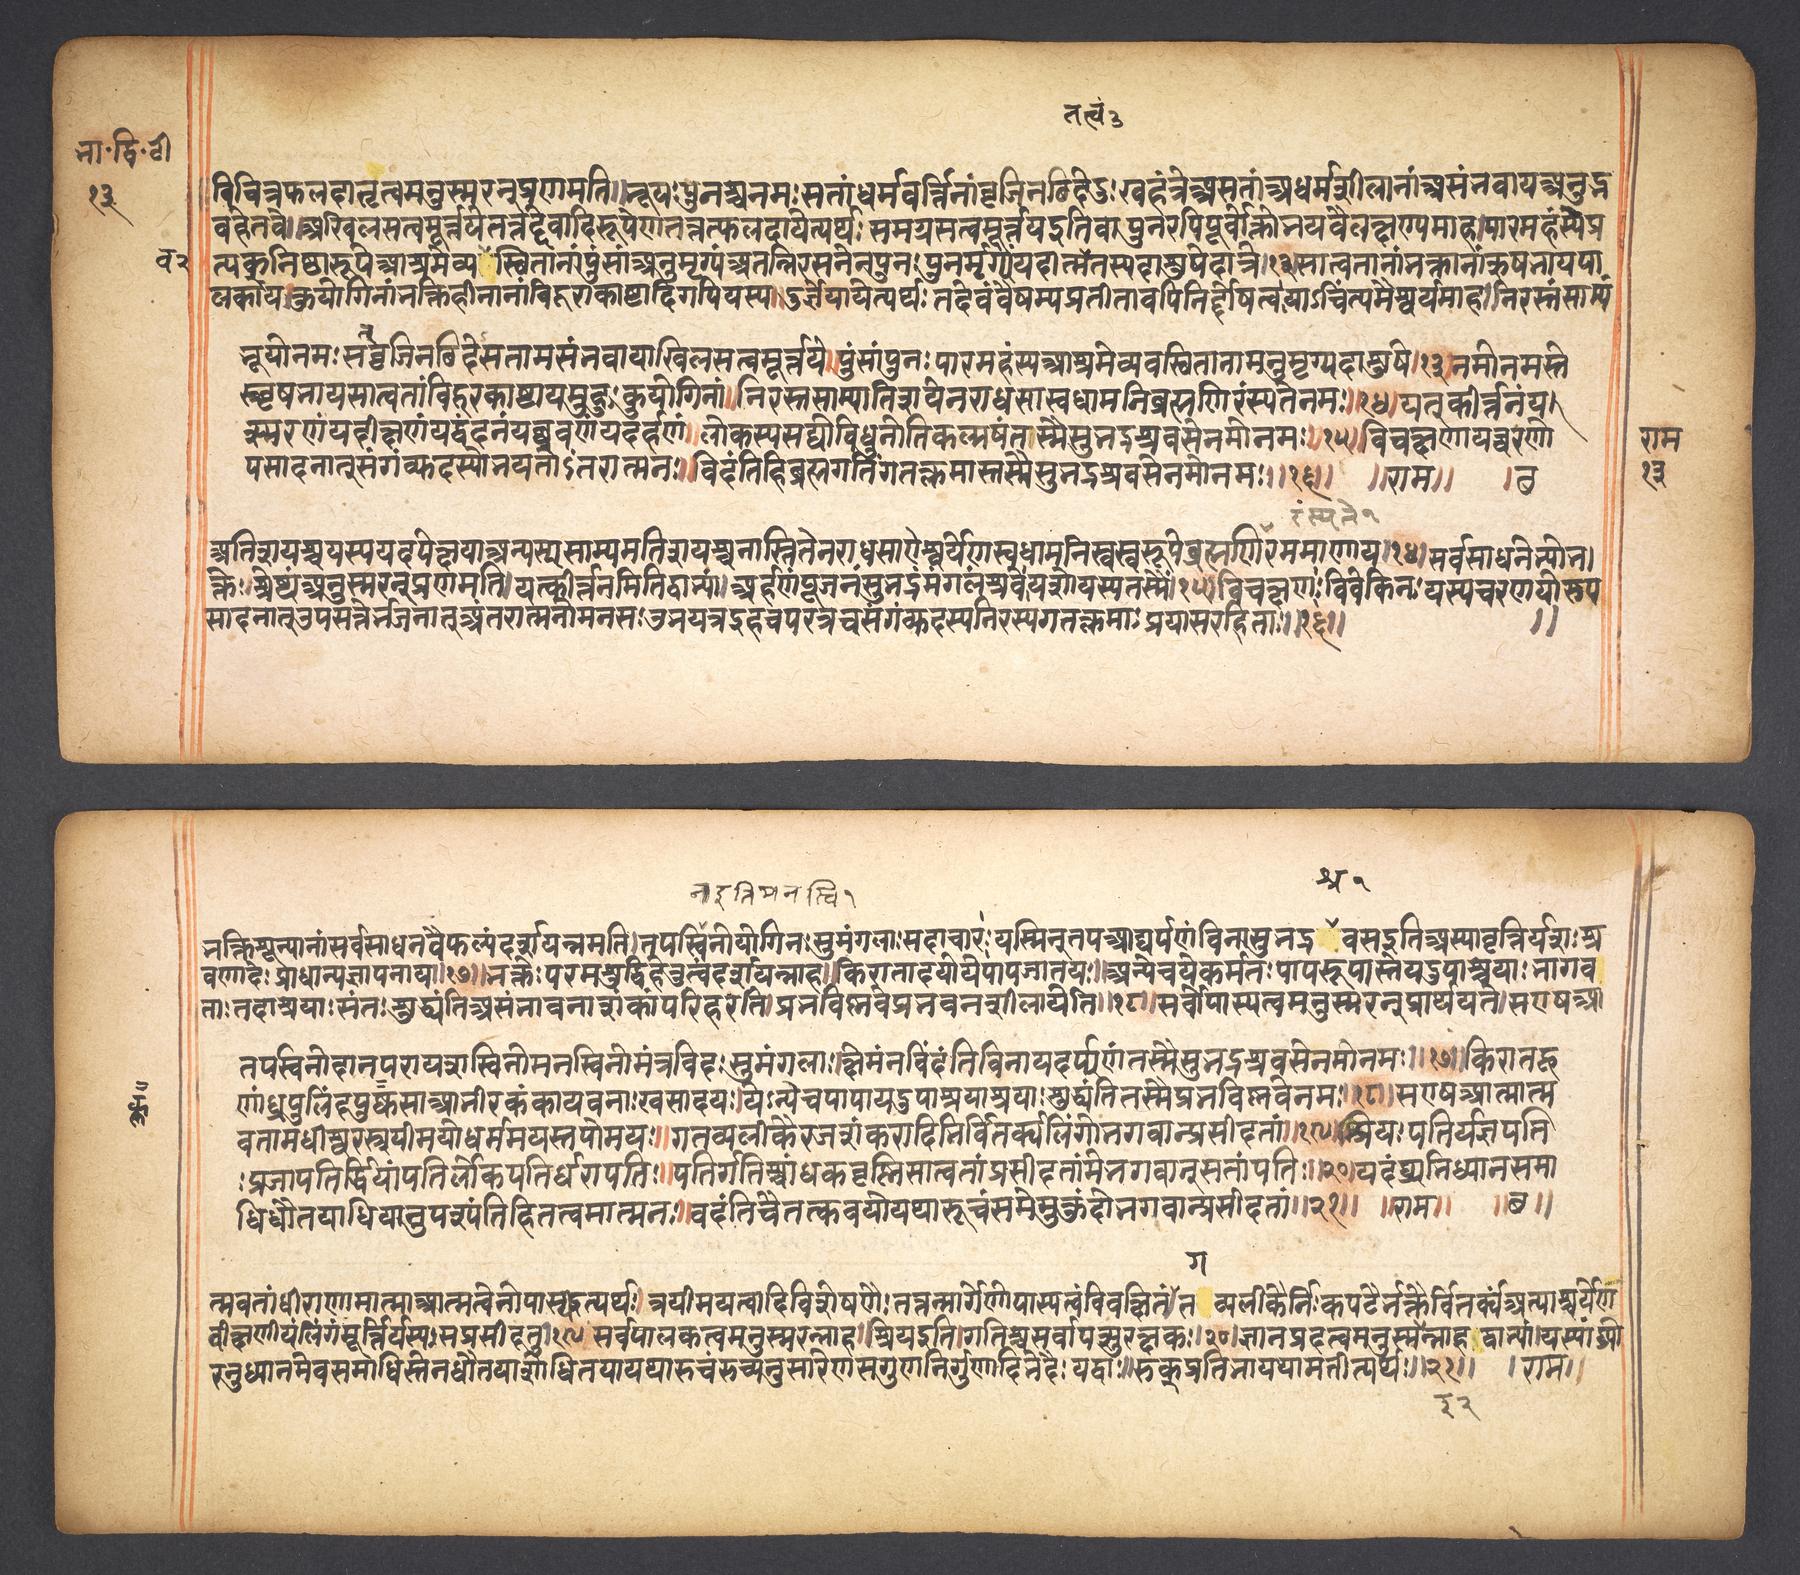 तत्वं३
भा.द्वि.टी
१३
विचित्रफलदातृत्वमनुस्मरन्प्रणमति॥भूयः पुनश्चनमः सतां धर्मवर्त्तिनां वृजिनछिदेदुःखहंत्रेअसतांअधर्मशीलानांअसंभवायअनुद्भ
वहेतवे॥अखिलसत्वमूर्त्तयेतत्तद्देवादिरूपेणतत्तत्फलदायेत्यर्थः समग्रसत्वमूर्त्तयइतिवा पुनरपिपूर्वोक्तोभयवैलक्षण्यमाह॥पारमहंस्येप्र
व२
त्यक्‌निष्ठारूपेआश्रमेव्य स्थितानांपुंसांअनुमृग्यंअतन्निरसनेनपुनः पुनर्मृग्यंयदात्मतत्वंतस्यदाशुषेदात्रे॥१३॥सात्वतानांभक्तानांऋषभायपा
लकाय॥कुयोगिनांभक्तिहीनानांविदूराकाष्ठादिगपियस्य॥दुर्ज्ञेयायेत्यर्थः तदेवंवैषम्यप्रतीतावपिनिर्दोषत्वायाऽचिंत्यमैश्वर्यमाह॥निरस्तंसाम्यं
भूयोनमः सद्वृजिनछिदेसतामसंभवायाखिलसत्वमूर्त्तये॥पुंसांपुनः पारमहंस्यआश्रमेव्यवस्थितानामनुमृग्यदाशुषे॥१३॥नमोनमस्ते
स्त्वृषभायसात्वतांविदूरकाष्ठायमुहुः कुयोगिनां॥निरस्तसाम्यातिशयेनराधसास्वधामनिब्रह्मणिरंस्यतेनमः॥१४॥यत्कीर्त्तनंय
त्स्मरणंयदीक्षणंयद्वंदनंयछ्रवणंयदर्हणं॥लोकस्यसद्योविधुनोतिकल्मषंतस्मैसुभद्रश्रवसेनमोनमः॥१५॥विचक्षणायच्चरणो
पसादनात्संगंव्युदस्योभयतोऽंतरात्मनः॥विदंतिहिब्रह्मगतिंगतक्लमास्तस्मैसुभद्रश्रवसेनमोनमः॥१६॥ ॥राम॥ ।छ
राम
१३
रंस्यते१
अतिशयश्चयस्ययदपेक्षयाअन्यस्यसाम्यमतिशयश्चनास्तितेनराधसाऐश्वर्येणस्वधामनिस्वस्वरूपेब्रह्मणिरममाणाय॥१४॥सर्वसाधनेभ्योभ।
क्तिःश्रेष्ठांअनुस्मरन्प्रणमति॥यत्कीर्त्तनमितिद्वाभ्यां॥अर्हणंपूजनंसुभद्रंमंगलंश्रवोयशोयस्यतस्मै॥१५॥विचक्षणाः विवेकिनः यस्यचरणयोरुप
सादनात्उपसत्तेर्भजनात्अंतरात्मनोमनसः उभयत्रइहचपरत्रचसंगंव्युदस्यनिरस्यगतक्लमाः प्रयासरहिताः॥१६॥ ॥
नाइतिमनस्वि१
श्र१
भक्तिशून्यानांसर्वसाधनवैफल्यंदर्शयन्नमति॥तपस्विनोयोगिनः सुमंगलाः सदाचाराः यस्मिन्तपआद्यर्पणंविनासुभद्र वसइतिअस्यावृत्तिर्यशः श्र
वणादेः प्राधान्यज्ञापनाय॥१७॥भक्तेः परमशुद्धिहेतुत्वंदर्शयन्नाह॥किरातादयोयेपापजातयः॥अन्येचयेकर्मतः पापरूपास्तेयदुपाश्रयाः भागव
ताः तदाश्रयाः संतः शुद्ध्यंतिअसंभावनाशंकांपरिहरति॥प्रभविष्णवेप्रभवनशीलायेति॥१८॥सर्वोपास्यत्वमनुस्मरन्प्रार्थयते॥सएषआ
तपस्विनोदानपरायशस्विनोमनस्विनोमंत्रविदः सुमंगलाः॥क्षेमंनविंदंतिविनायदर्पणंतस्मैसुभद्रश्रवसेनमोनमः॥१७॥किरातहू
णांध्रपुलिंदपुल्कसाआभीरकंकायवनाः खसादयः॥येऽन्येचपापायदुपाश्रयाश्रयाः शुद्ध्यंतितस्मैप्रभविष्णवेनमः॥१८॥सएषआत्मात्म
वतामधीश्वरस्त्रयीमयोधर्ममयस्तपोमयः॥गतव्यलीकैरजशंकरादिभिर्वितर्क्यलिंगोभगवान्प्रसीदतां॥१९॥श्रियः पतिर्यज्ञपति
ः प्रजापतिर्द्धियांपतिर्लोकपतिर्धरापतिः॥पतिर्गतिश्चांधकवृष्णिसात्वतांप्रसीदतांमेभगवान्सतांपतिः॥२०॥यदंघ्र्यभिध्यानसमा
धिधौतयाधियानुपश्यंतिहितत्वमात्मनः॥वदंतिचैतत्कवयोयथारुचंसमेमुकुंदोभगवान्प्रसीदतां॥२१॥ ॥राम॥ ॥छ॥
ग
त्मवतांधीराणामात्माआत्मत्वेनोपास्यइत्यर्थः॥त्रयीमयत्वादिविशेषणैः तत्तन्मार्गेणोपास्यत्वंविवक्षितं॥त व्यलीकैर्निः कपटैर्भक्तैर्वितर्क्यंअत्याश्चर्येण
वीक्षणीयंलिंगंमूर्त्तिर्यस्यः सप्रसीदतु॥१९॥सर्वपालकत्वमनुस्मरन्नाह॥श्रियइति॥गतिश्चसर्वापत्सुरक्षकः॥२०॥ज्ञानप्रदत्वमनुस्मरन्नाह द्वाभ्यां॥यस्यांघ्र्यो
रनुध्यानमेवसमाधिस्तेनधौतयाशोधितयायथारुचंरुच्यनुसारेणसगुणनिर्गुणादिभेदैः यद्वा॥रुक्‌प्रतिभायथामतीत्यर्थः॥२१॥ ।राम॥
इ२